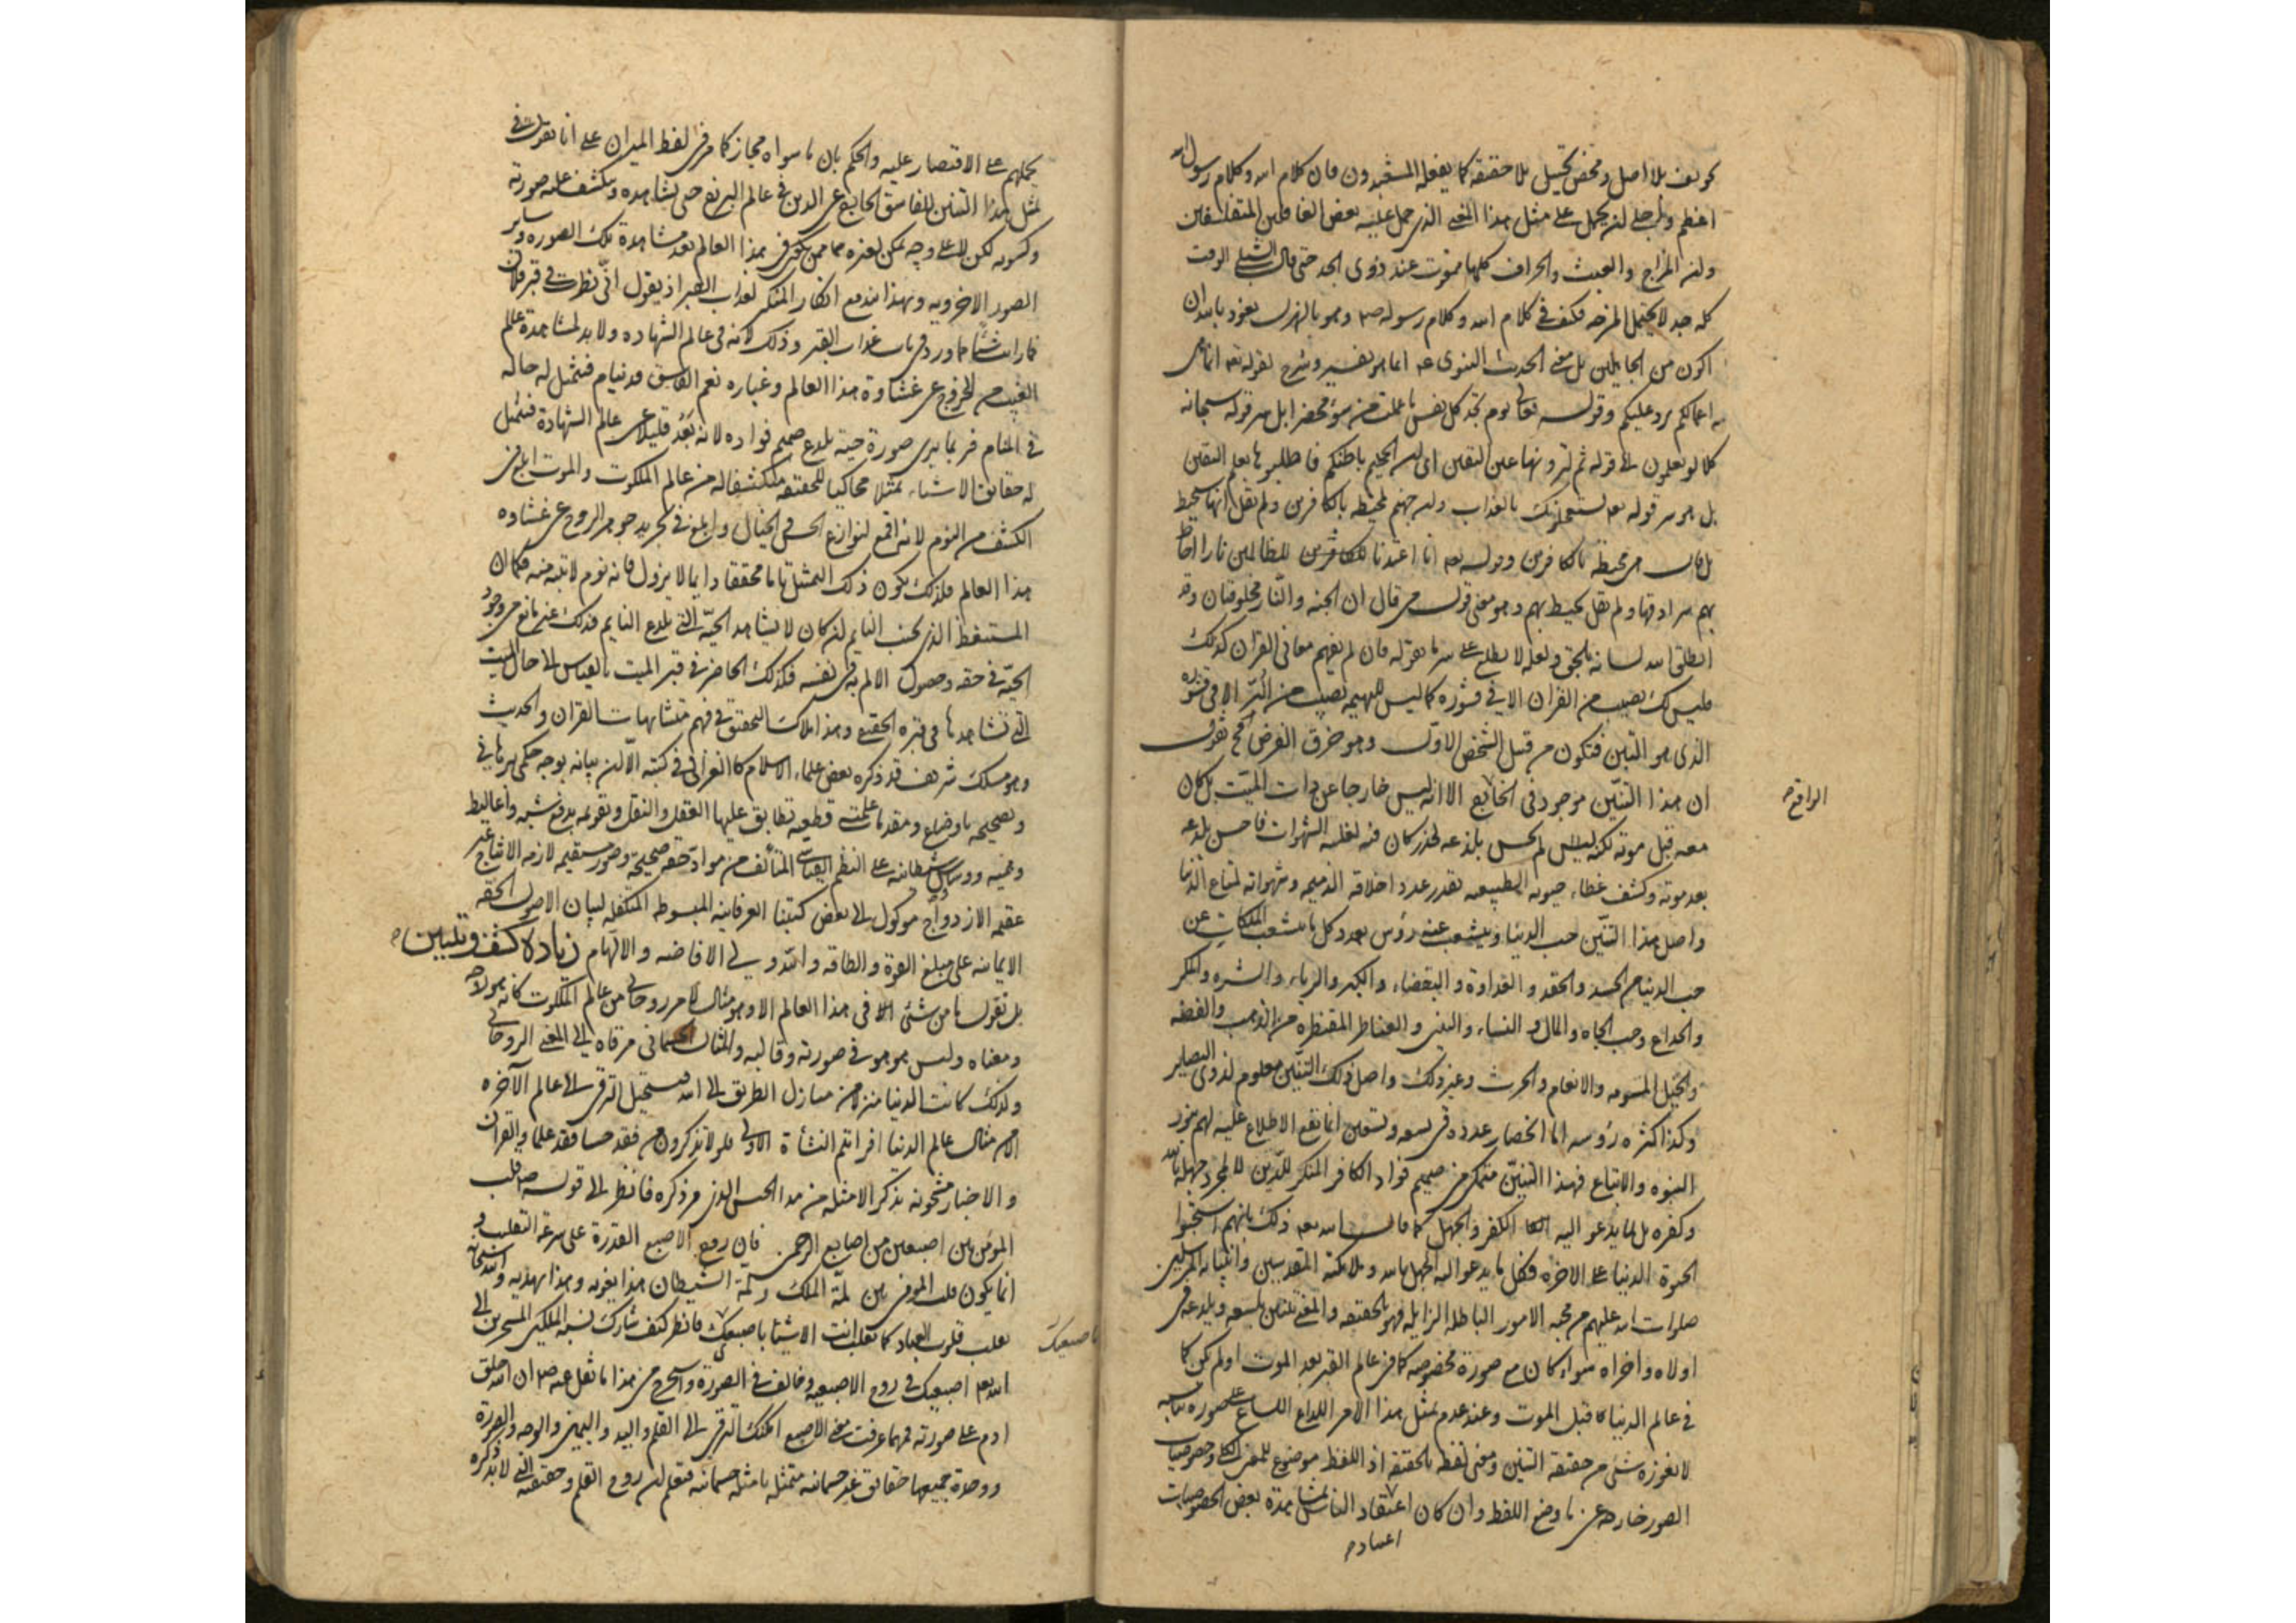 تخويف بلا اصل ومحض تخييل بلا حقيقة كما يفعله المشعبدون فان كلام الله وكلام رسول الله
اعظم واجل من ان يحمل على مثل هذا المعنى الذى حمل عليه بعض الغافلين المتفلسفين
ولان المزاح والعبث والجزاف كلها ممقوت عند ذوى الجد حتى قال الشبلى الوقت
كله جد لا يحتمل المزح فكيف فى كلام الله وكلام رسوله وهو بالهزل نعوذ بالله ان
اكون من الجاهلين بل معنى الحديث النبوى انما هو تفسير وشرح لقوله تعه انما هى
اعمالكم ترد عليكم وقوله تعالى يوم تجد كل نفس ما عملت من سوء محضرا بل سر قوله سبحانه
كلا لو تعلمون الى قوله ثم لترونها عين اليقين اى ان الجحيم باطنكم فاطلبوها بعلم اليقين
بل هو سر قوله تعه يستعجلونك بالعذاب وان جهنم لمحيطة بالكافرين ولم يقل انها ستحيط
بل قال هى محيطة بالكافرين وقوله تعه انا اعتدنا للظالمين نارا احاط
بهم سرادقها ولم يقل يحيط بهم وهو معنى قول من قال ان الجنة والنار مخلوقتان وقد
انطق الله لسانه بالحق ولعله لا يطلع على سر ما يقوله فان لم يفهم معانى القران كذلك
فليس لك نصيب من القران الا فى قشوره كما ليس للبهيمة نصيب من البر الا فى قشوره
الذى هو التبن فتكون من قبيل الشخص الاول وهو خرق الفرض فح نقول
ان هذا التنين موجود فى الواقع الا انه ليس خارجا عن ذات الميت بل كان
معه قبل موته لكنه لم يحس بلدغه لخدر كان فيه لغلبة الشهوات فاحس بلدغه
بعد موته وكشف غطاء حيوته الطبيعيه بقدر عدد اخلاقه الذميمه وشهواته لمتاع الدنيا
واصل هذا التنين حب الدنيا ويتشعب عنه رؤس بعدد كل ما يتشعب الملكات عن
حب الدنيا من الحسد والحقد والعداوة والبغضاء والكبر والرياء والشره والمكر
والخداع وحب الجاه والمال والنساء والبنين والقناطير المقنطره من الذهب والفضه
والخيل المسومه والانعام والحرث وغير ذلك واصل ذلك التنين معلوم لذوى البصاير
وكذا كثرة رؤسه اما انحصار عدده فى تسعه وتسعين انما يقع الاطلاع عليه لهم بنور
النبوه والاتباع فهذا التنين متمكن من صميم فؤاد الكافر المنكر للدين لا لمجرد جهله بالله
وكفره بل لما يدعو اليه الكفر والجهل كما قال الله تعه ذلك بانهم استحبوا
الحيوة الدنيا على الاخرة فكل ما يدعو اليه الجهل بالله وملائكته المقدسين وانبيائه المرسلين
صلوات الله عليهم من محبه الامور الباطله الزايله فهو بالحقيقه والمعنى تنين يلسعه ويلدغه فى
اولاه واخراه سواء كان مع صورة مخصوصه كما فى عالم القبر بعد الموت او لم يكن كما
فى عالم الدنيا قبل الموت وعند عدم تمثل هذا الامر اللداغ اللساع على صوره تناسبه
لا يعوزه شئ من حقيقه التنين ومعنى لفظه بالحقيقه اذ اللفظ موضوع للمعنى الكلى وخصوصيات
الصور خارجه عن ما وضع اللفظ وان كان اعتقاد الناس لمشاهدة بعض الخصوصيات
الواقع
يحملهم على الاقتصار عليه والحكم بان ما سواه مجاز كما مر فى لفظ الميزان على انا نقول فى
تمثل هذا التنين للفاسق الخارج عن الدين فى عالم البرزخ حتى يشاهده وينكشف عليه صورته
وكسوته لكن لا على وجه يمكن لغيره ممن يكون فى هذا العالم بعد مشاهدة تلك الصوره وساير
الصور الاخرويه وبهذا يندفع انكار المنكر لعذاب القبر اذ يقول انى نظرت فى قبر فلان
فما رايت شيئا مما ورد فى باب عذاب القبر وذلك لانه فى عالم الشهاده ولا بد لمشاهدة عالم
الغيب من الخروج عن غشاوة هذا العالم وغباره نعم الفاسق قد ينام فيتمثل له حاله
فى المنام فربما يرى صورة حية يلدغ صميم فواده لانه بعد قليلا عن عالم الشهادة فتمثل
له حقايق الاشياء تمثلا محاكيا للحقيقه منكشفا له من عالم الملكوت والموت ابلغ فى
الكشف من النوم لانه اقمع لنوازع الحس والخيال وابلغ فى تجريد جوهر الروح عن غشاوه
هذا العالم فلذلك يكون ذلك التمثل تاما محققا دايما لا يزول فانه نوم لا ينتبه منه فكان
المستيقظ الذى بجنب النايم ان كان لا يشاهد الحية التى يلدغ النايم فذلك غير مانع من وجود
الحية فى حقه وحصول الالم به فى نفسه فكذلك الحاضر فى قبر الميت بالقياس الى حال الميت
التى تشاهدها فى قبره الحقيقى وهذا ملاك التحقيق فى فهم متشابهات القران والحديث
وهو مسلك شريف قد ذكره بعض علماء الاسلام كالغزالى فى كتبه الا ان بيانه بوجه حكمى برهانى
وتصحيحه باوضاع ومقدمات علميه قطعيه تطابق عليها العقل والنقل وتقويمه بدفع شبه واغاليط
وهميه ووساوس شيطانيه على النظم القياسى المتألف من مواد حقه صحيحة وصور مستقيمه لازمه الانتاج غير
عقيم الازدواج موكول الى بعض كتبنا العرفانيه المبسوطه المتكفله لبيان الاصول الحقه
الايمانيه على مبلغ القوة والطاقه والله ولى الافاضه والالهام زيادة كشف وتبيين
بل نقول ما من شئ فى هذا العالم الا وهو مثال لامر روحانى من عالم الملكوت كانه روحه
ومعناه وليس هو هو فى صورته وقالبه والمثال الجسمانى مرقاه الى المعنى الروحانى
ولذلك كانت الدنيا منزلا من منازل الطريق الى الله فيستحيل الترقى الى عالم الآخره
الا من مثال عالم الدنيا افرايتم النشأة الاولى فلولا تذكرون من فقد حسا فقد علما والقران
والاخبار مشحونه بذكر الامثله من هذا الجنس الذى مر ذكره فانظر الى قوله صه قلب
المؤمن بين اصبعين من اصابع الرحمن فان روح الاصبع القدرة على سرعة التقليب و
انما يكون قلب المؤمن بين لمة الملك ولمة الشيطان هذا يغويه وهذا يهديه والله سبحانه
يقلب قلوب العباد كما تقلب انت الاشياء باصبعيك فانظر كيف شارك نسبه الملكين المسخرين الى
الله تعه اصبعيك فى روح الاصبعيه وخالف فى الصورة واستخرج من هذا ما نقل عنه ان الله خلق
ادم على صورته فمهما عرفت معنى الاصبع امكنك الترقى الى القلم واليد واليمين والوجه والصورة
ووجدة جميعها حقايق غير جسمانيه متمثله بامثله جسمانيه فتعلم ان روح القلم وحقيقته التى لا بد ذكره
باصبعيك